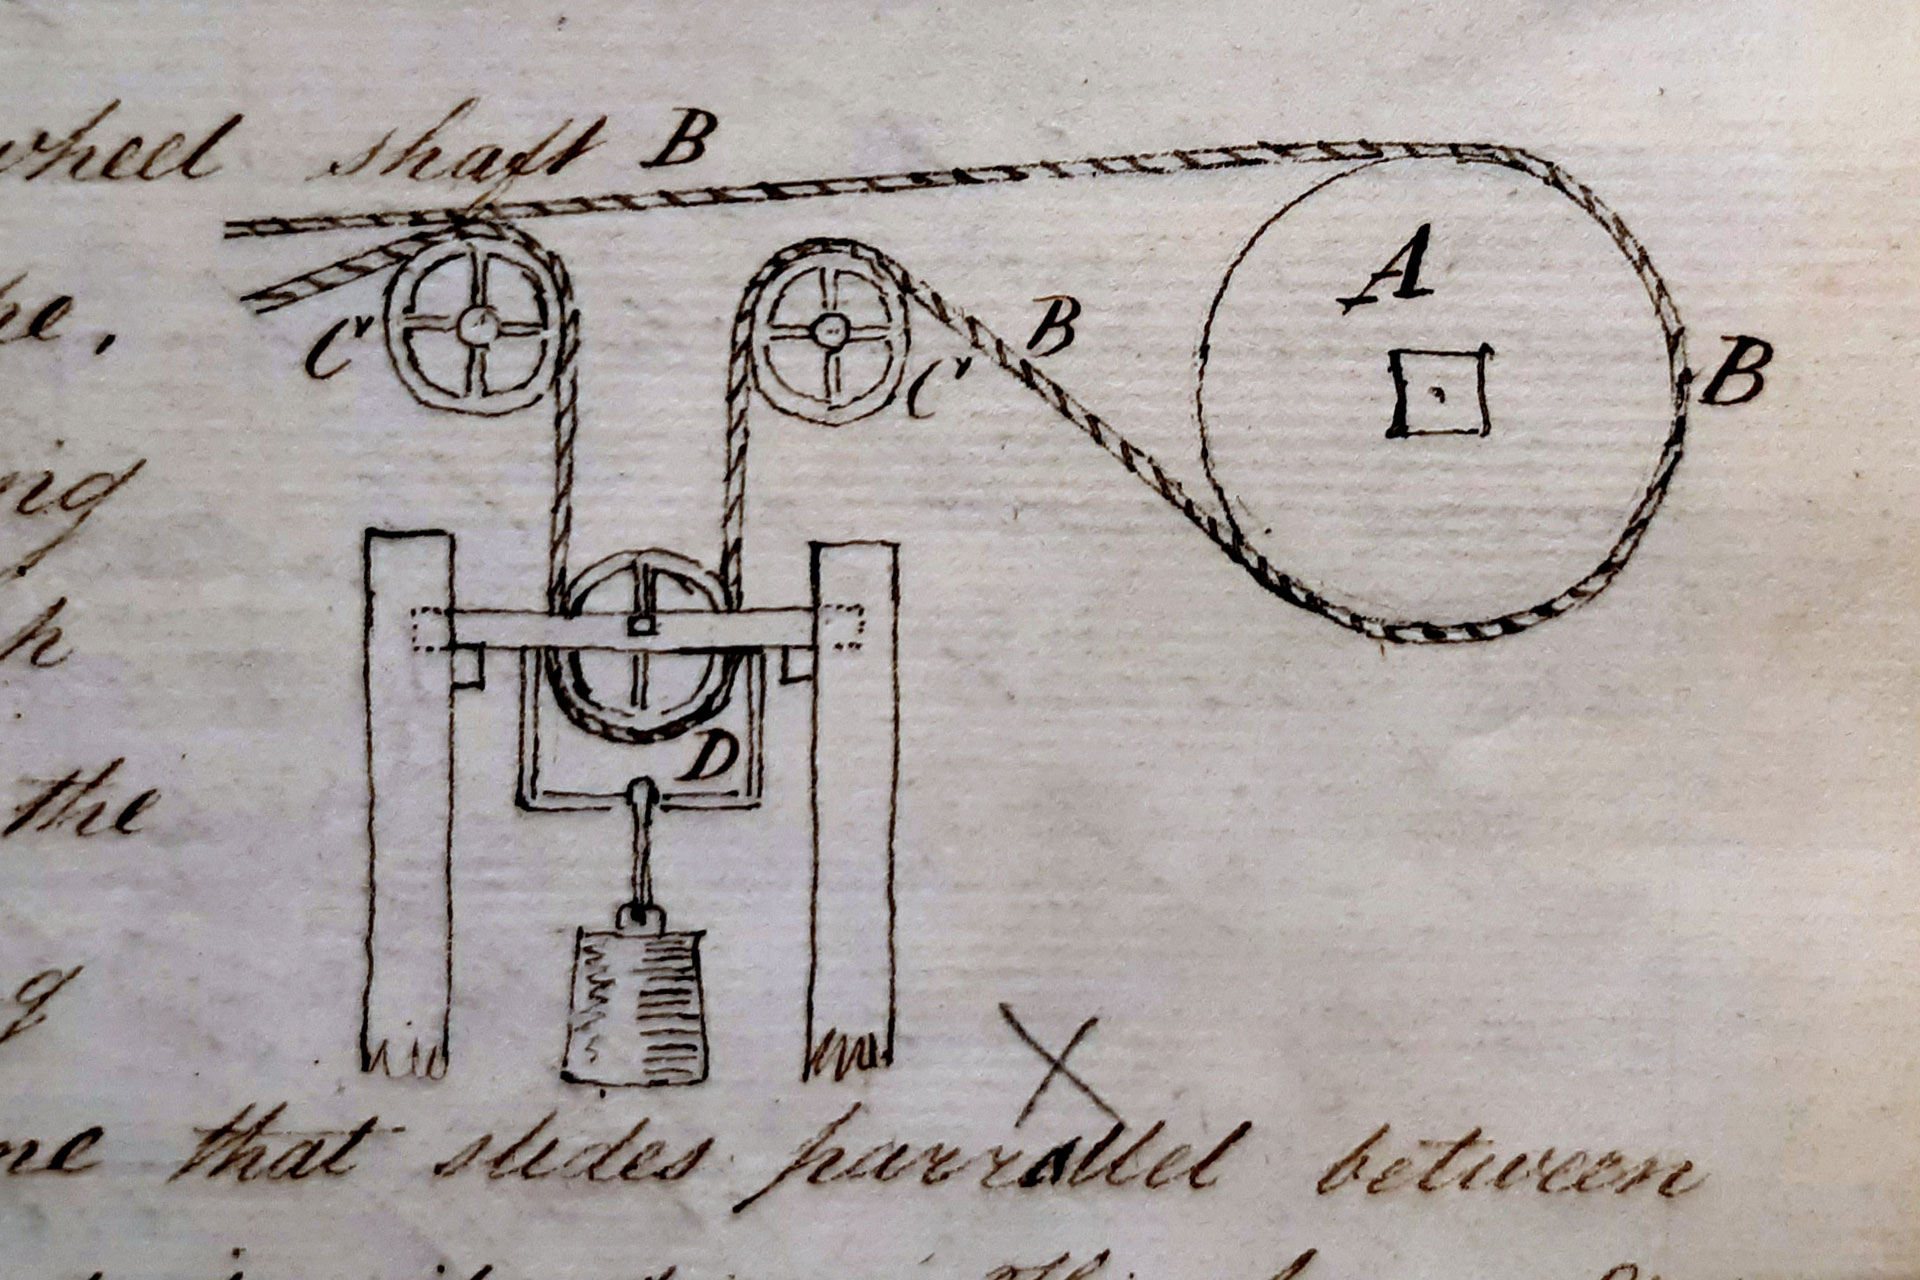 wheel shaft B
he,
A
B
C
C
B
ing
h
D
the
g
X
me that slides parrallel between